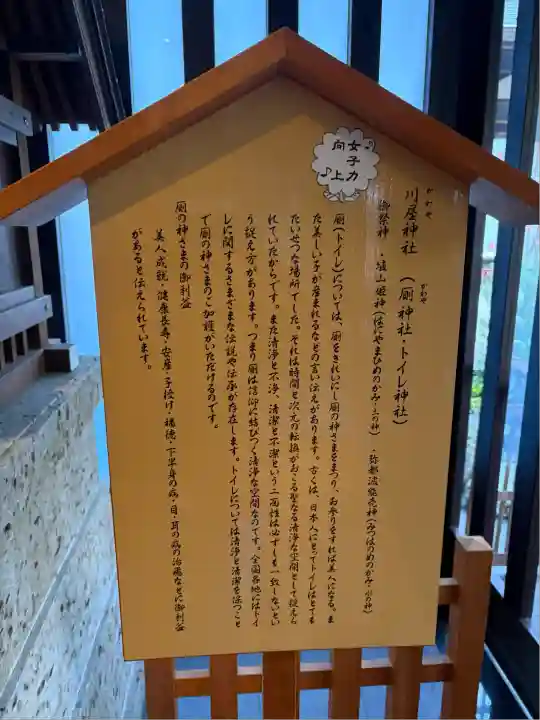 女子力
向上
かわや
かわや
川屋神社 (厠神社・トイレ神社)
御祭神 ・埴山姫神(はにやまひめのかみ・土の神) ・弥都波能売神(みつはのめのかみ・水の神)
厠(トイレ)については、厠をきれいにし厠の神さまをまつり、お参りをすれば美人になる。ま
た美しい子が産まれるなどの言い伝えがあります。古くは、日本人にとってトイレはとても
たいせつな場所でした。それは時間と次元の転換がおこる聖なる清浄な空間として捉えら
れていたからです。また清浄と不浄、清潔と不潔という二面性は必ずしも一致しないとい
う捉え方があります。つまり厠は信仰に結びつく清浄な空間なのです。全国各地にはトイ
レに関するさまざまな伝説や伝承が存在します。トイレについては清浄と清潔を保つこと
で厠の神さまのご加護がいただけるのです。
厠の神さまの御利益
美人成就・健康長寿・安産・子授け・福徳・下半身の病・目・耳の病の治癒などに御利益
があると伝えられています。